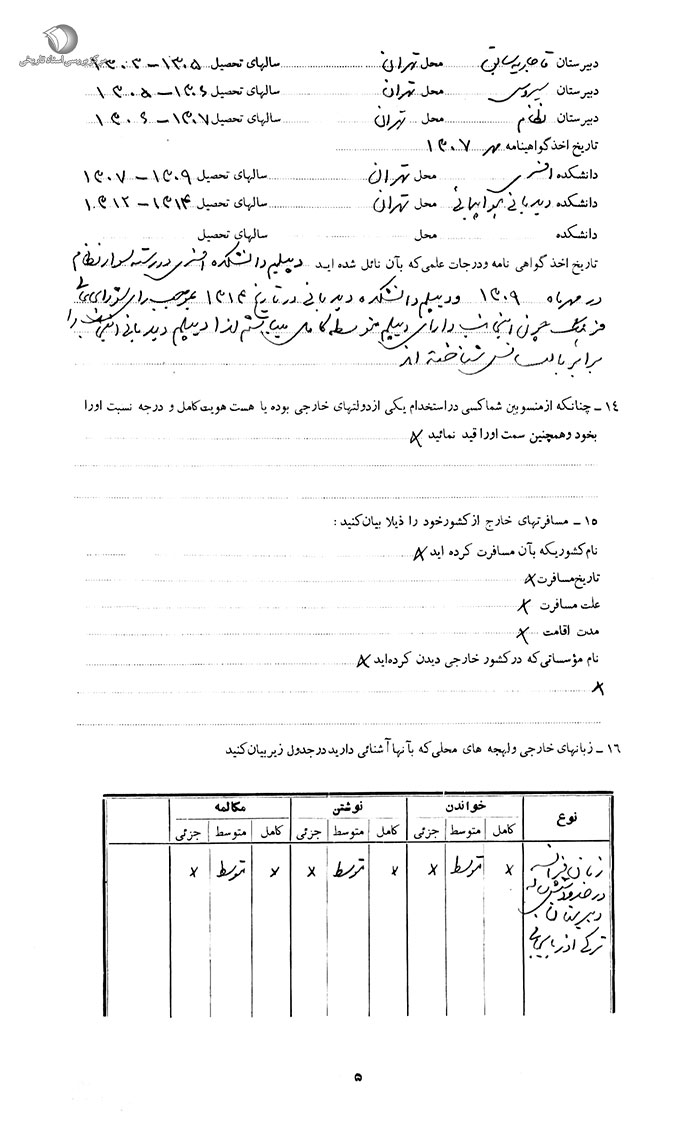 مرکز بررسی اسناد تاریخی
دبیرستان قاجاریه ساتی محل تهران سالهای تحصیل ۱۳۰۳-۱۳۰۵
دبیرستان سیروس محل تهران سالهای تحصیل ۱۳۰۵-۱۳۰۶
دبیرستان نظام محل تهران سالهای تحصیل ۱۳۰۶-۱۳۰۷
تاریخ اخذ گواهینامه مهر ۱۳۰۷
دانشکده افسری محل تهران سالهای تحصیل ۱۳۰۷-۱۳۰۹
دانشکده دیدبانی هواپیمائی محل تهران سالهای تحصیل ۱۳۱۲-۱۳۱۴
دانشکده محل سالهای تحصیل
تاریخ اخذ گواهی نامه و درجات علمی که بآن نائل شده اید دیپلم دانشکده افسری در رسته سوار نظام
در مهرماه ۱۳۰۹ و دیپلم دانشکده دیدبانی در تاریخ ۱۳۱۴ بموجب رای شورای عالی
فرهنگ چون اینجانب دارای دیپلم متوسطه کامل میباشم لذا دیپلم دیدبانی اینجانب را
برابر با لیسانس شناخته اند
۱۴ - چنانکه از منسوبین شما کسی در استخدام یکی از دولتهای خارجی بوده یا هست هویت کامل و درجه نسبت او را
بخود و همچنین سمت او را قید نمائید x
۱۵ - مسافرتهای خارج از کشور خود را ذیلا بیان کنید :
نام کشوریکه بآن مسافرت کرده اید x
تاریخ مسافرت x
علت مسافرت x
مدت اقامت x
نام مؤسساتی که در کشور خارجی دیدن کرده‌اید x
x
۱۶ - زبانهای خارجی و لهجه های محلی که بآنها آشنائی دارید در جدول زیر بیان کنید
نوع خواندن نوشتن مکالمه
کامل متوسط جزئی کامل متوسط جزئی کامل متوسط جزئی
زبان فرانسه x متوسط x x متوسط x x متوسط x
در حدود شش ساله
دبیرستان
ترکی آذربایجانی
۵